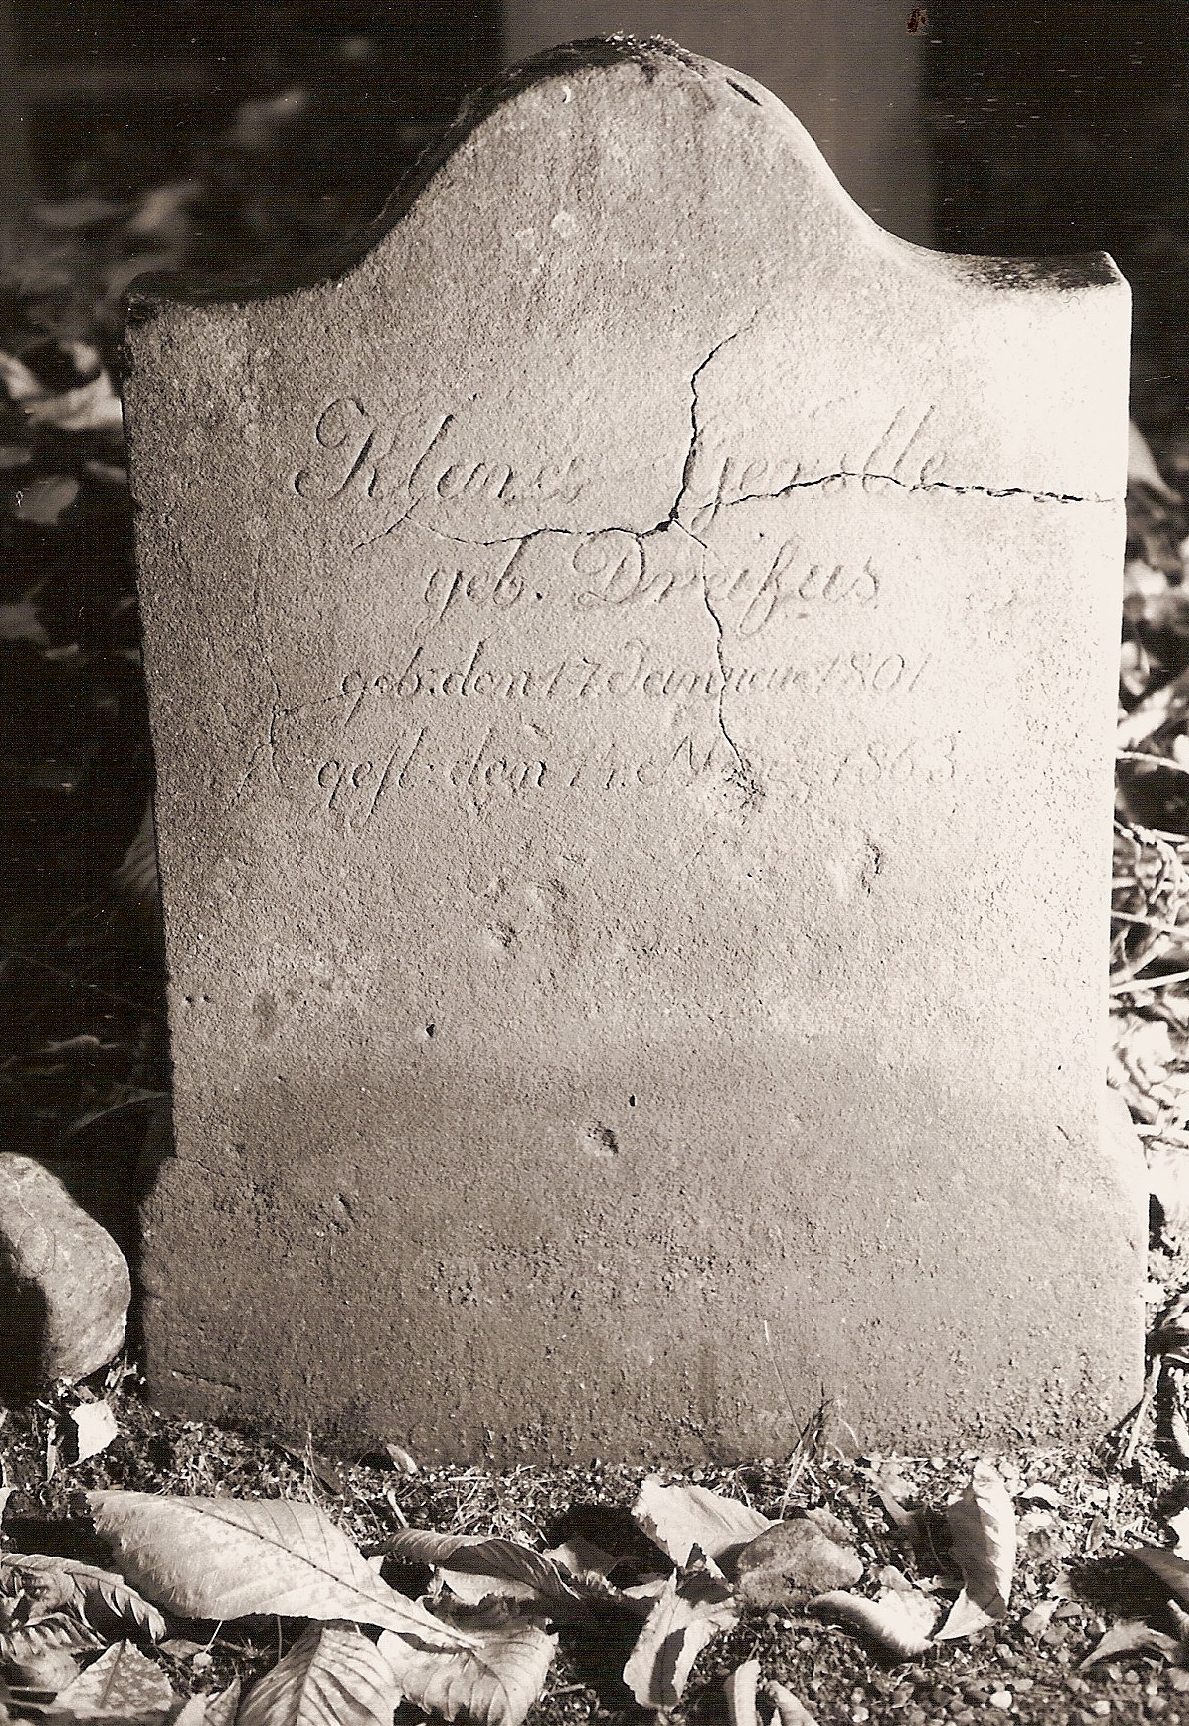 Gerstle
geb. Dreifus
geb: den 17. Januar 1801
gest: den 1863